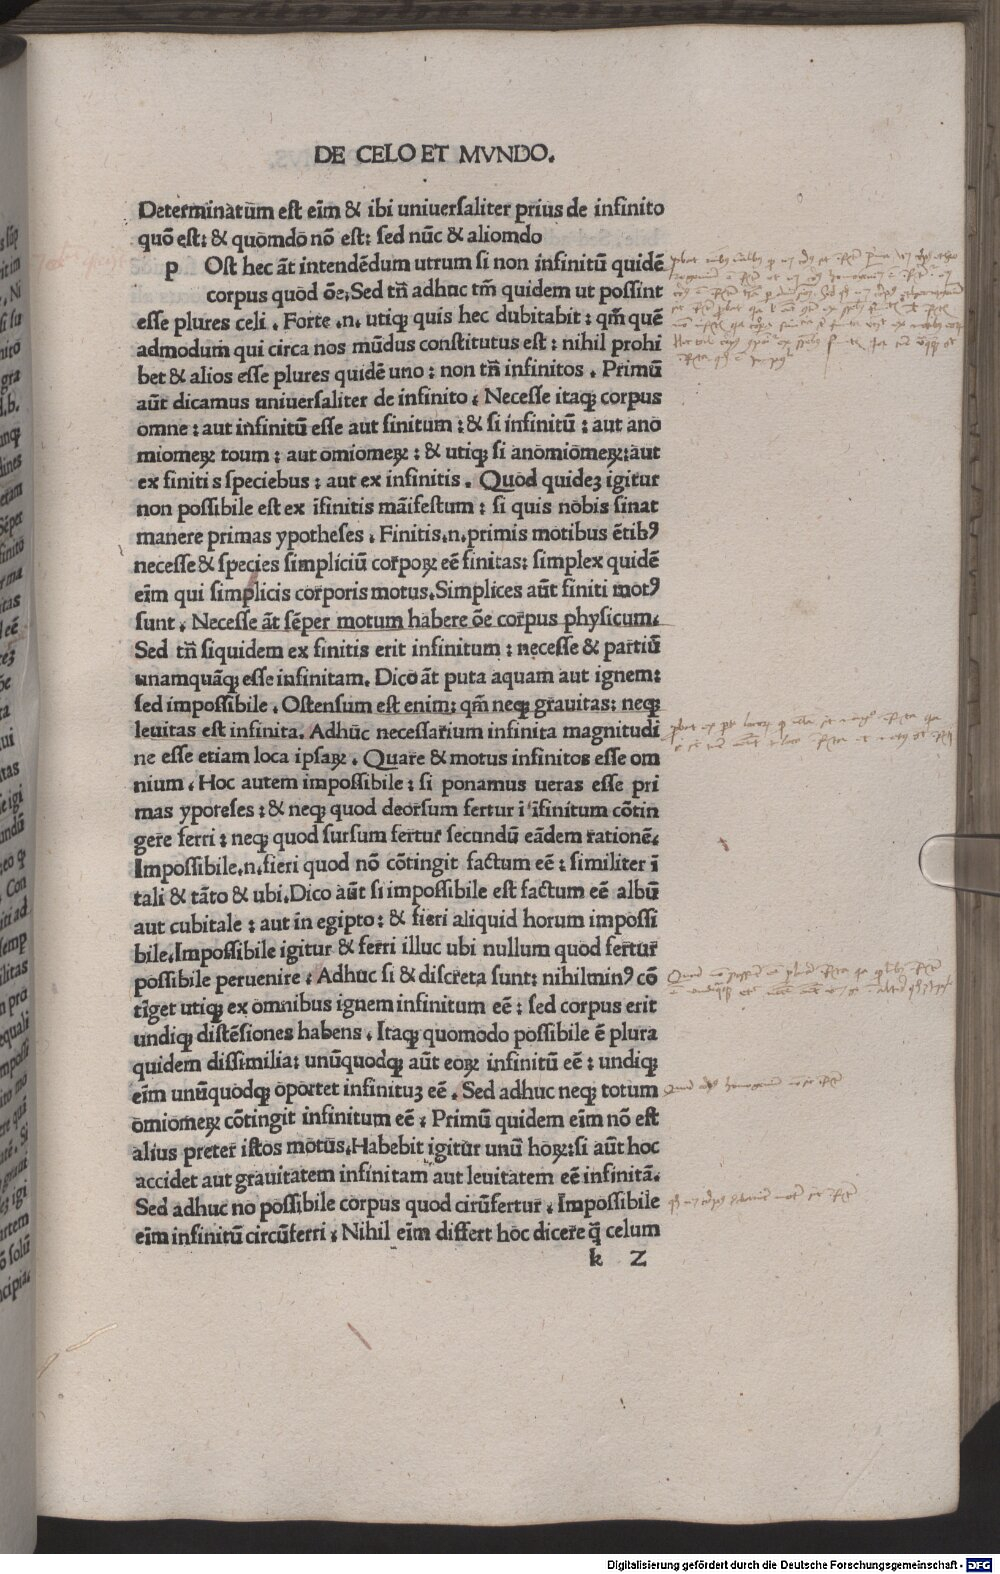 DE CELO ET MVNDO.
Determinatum est eīm & ibi uniuersaliter prius de infinito
quō est: & quomdo nō est: sed nūc & aliomdo
p Ost hec āt intendēdum utrum si non infinitū quidē
corpus quod ōe. Sed tñ adhuc tm̄ quidem ut possint
esse plures celi . Forte .n. utiq; quis hec dubitabit : qm̄ quē
admodum qui circa nos mūdus constitutus est : nihil prohi
bet & alios esse plures quidē uno : non tñ infinitos . Primū
aūt dicamus uniuersaliter de infinito . Necesse itaq; corpus
omne : aut infinitū esse aut finitum : & si infinitū : aut ano
miomeꝝ toum : aut omiomeꝝ : & utiq; si anomiomeꝝ: aut
ex finitis speciebus : aut ex infinitis . Quod quideꝫ igitur
non possibile est ex īfinitis māifestum : si quis nobis sinat
manere primas ypotheses . Finitis .n. primis motibus ētibꝰ
necesse & species simpliciū corpoꝝ eē finitas: simplex quidē
eīm qui simplicis corporis motus. Simplices aūt finiti motꝰ
sunt . Necesse āt sēper motum habere ōe corpus physicum.
Sed tñ siquidem ex finitis erit infinitum : necesse & partiū
unamquāq; esse infinitam . Dico āt puta aquam aut ignem:
sed impossibile . Ostensum est enim: qm̄ neq; grauitas: neq;
leuitas est infinita . Adhuc necessarium infinita magnitudi
ne esse etiam loca ipsaꝝ . Quare & motus infinitos esse om
nium . Hoc autem impossibile : si ponamus ueras esse pri
mas yporeses : & neq; quod deorsum fertur ī īfinitum cōtin
gere ferri : neq; quod sursum fertur secundū eādem rationē.
Impossibile .n. fieri quod nō cōtingit factum eē : similiter ī
tali & tāto & ubi . Dico aūt si impossibile est factum eē albū
aut cubitale : aut in egipto : & fieri aliquid horum impossi
bile. Impossibile igitur & ferri illuc ubi nullum quod fertur
possibile peruenire . Adhuc si & discreta sunt: nihilminꝰ cō
tīget utiq; ex omnibus ignem infinitum eē : sed corpus erit
undiq; distēsiones habens . Itaq; quomodo possibile ē plura
quidem dissimilia: unūquodq; aūt eoꝝ infinitū eē : undiq;
eīm unūquodq; oportet infinituꝫ eē . Sed adhuc neq; totum
omiomeꝝ cōtingit infinitum eē . Primū quidem eīm nō est
alius preter istos motus. Habebit igitur unū hoꝝ: si aūt hoc
accidet aut grauitatem infinitam aut leuitatem eē infinitā.
Sed adhuc no possibile corpus quod cirūfertur . Impossibile
eīm infinitū circūferri . Nihil eīm differt hoc dicere q̄ celum
k 2
Digitalisierung gefördert durch die Deutsche Forschungsgemeinschaft - DFG